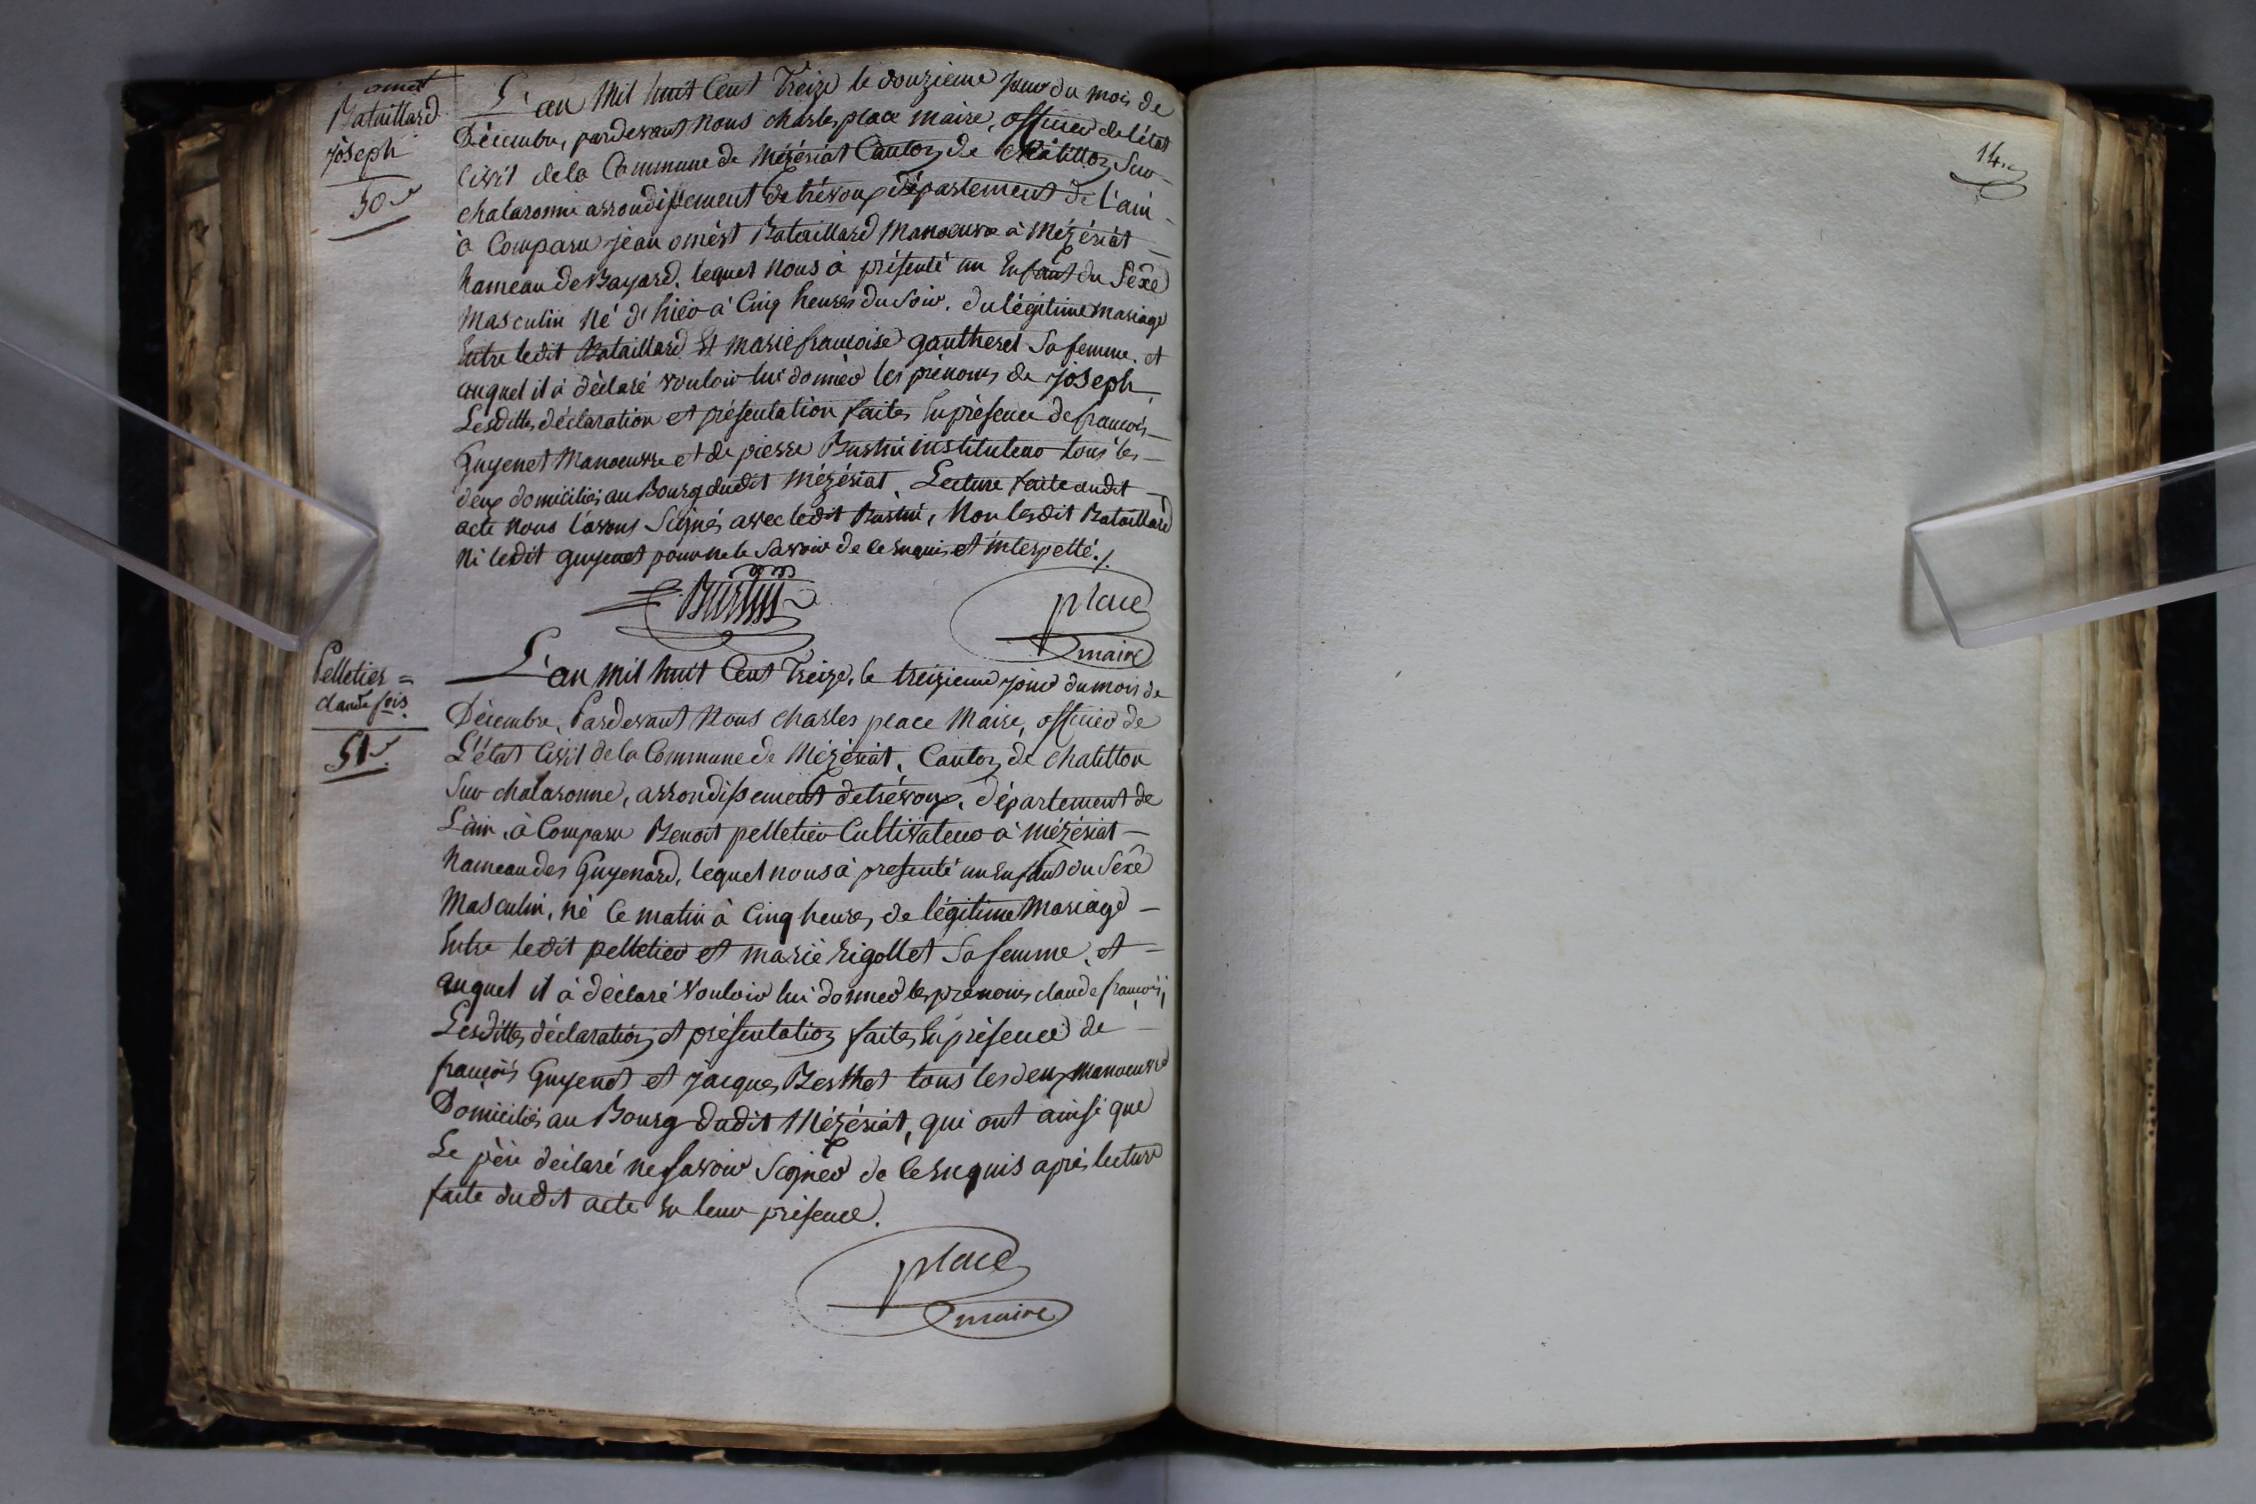 omet
Bataillard
joseph
50
L'an Mil huit Cent Treize le douzieme Jour du mois de
Décembre, pardevant Nous charles place maire, officier de l'état
Civil de la Commune de Mézériat Canton de châtillon Sur
chalaronne arrondissement de trévoux département de L'ain
à Comparu jean omèst Bataillard Manoeuvre à Mézériat
hameau de Bayard, lequel Nous à présenté un Enfant du Sêxe
Masculin Né d'hièr à Cinq heures du Soir, du légitime mariage
Entre ledit Bataillard Et marie francoise gautheret Sa femme, et
auquel il à déclaré vouloir lui donner les prénoms de joseph
Lesdittes déclaration et présentation faites En présence de francois
Guyenet Manoeuvre et de pierre Burtin instituteur tous les
deux domiciliés au Bourg dudit Mézériat, Lecture faite audit
acte Nous l'avons Signés avec ledit Burtin, Non lesdit Bataillard
Ni ledit guyenet pour ne le Savoir de ce Enquis et interpellé ./.
Burtin place
maire
Pelletier =
claude fois
51
L'an Mil huit Cent Treize, le treizieme jour du mois de
Décembre, Pardevant Nous charles place Maire, officier de
L'état Civil de la Commune de Mézériat, Canton de chatillon
Sur chalaronne, arrondissement de trévoux, département de
L'ain, à Comparu Benoit pelletier Cultivateur à mézériat
hameau des Guyenard, lequel nous à presenté un Enfant du Séxe
Masculin, né Ce matin à Cinq heures, de légitime Mariage
Entre ledit pelletier et marie rigollet Sa femme, et
auquel il à déclaré Vouloir lui donner les prenoms claude francois,
Lesdittes déclaration et présentation faites En présence de
françois Guyenet et jacques Berthet tous les deux manoeuvre
Domiciliés au Bourg dudit Mézériat, qui ont ainsi que
Le père déclaré ne Savoir Signer de ce Enquis aprés lecture
faite dudit acte En leur présence.
place
maire
14.